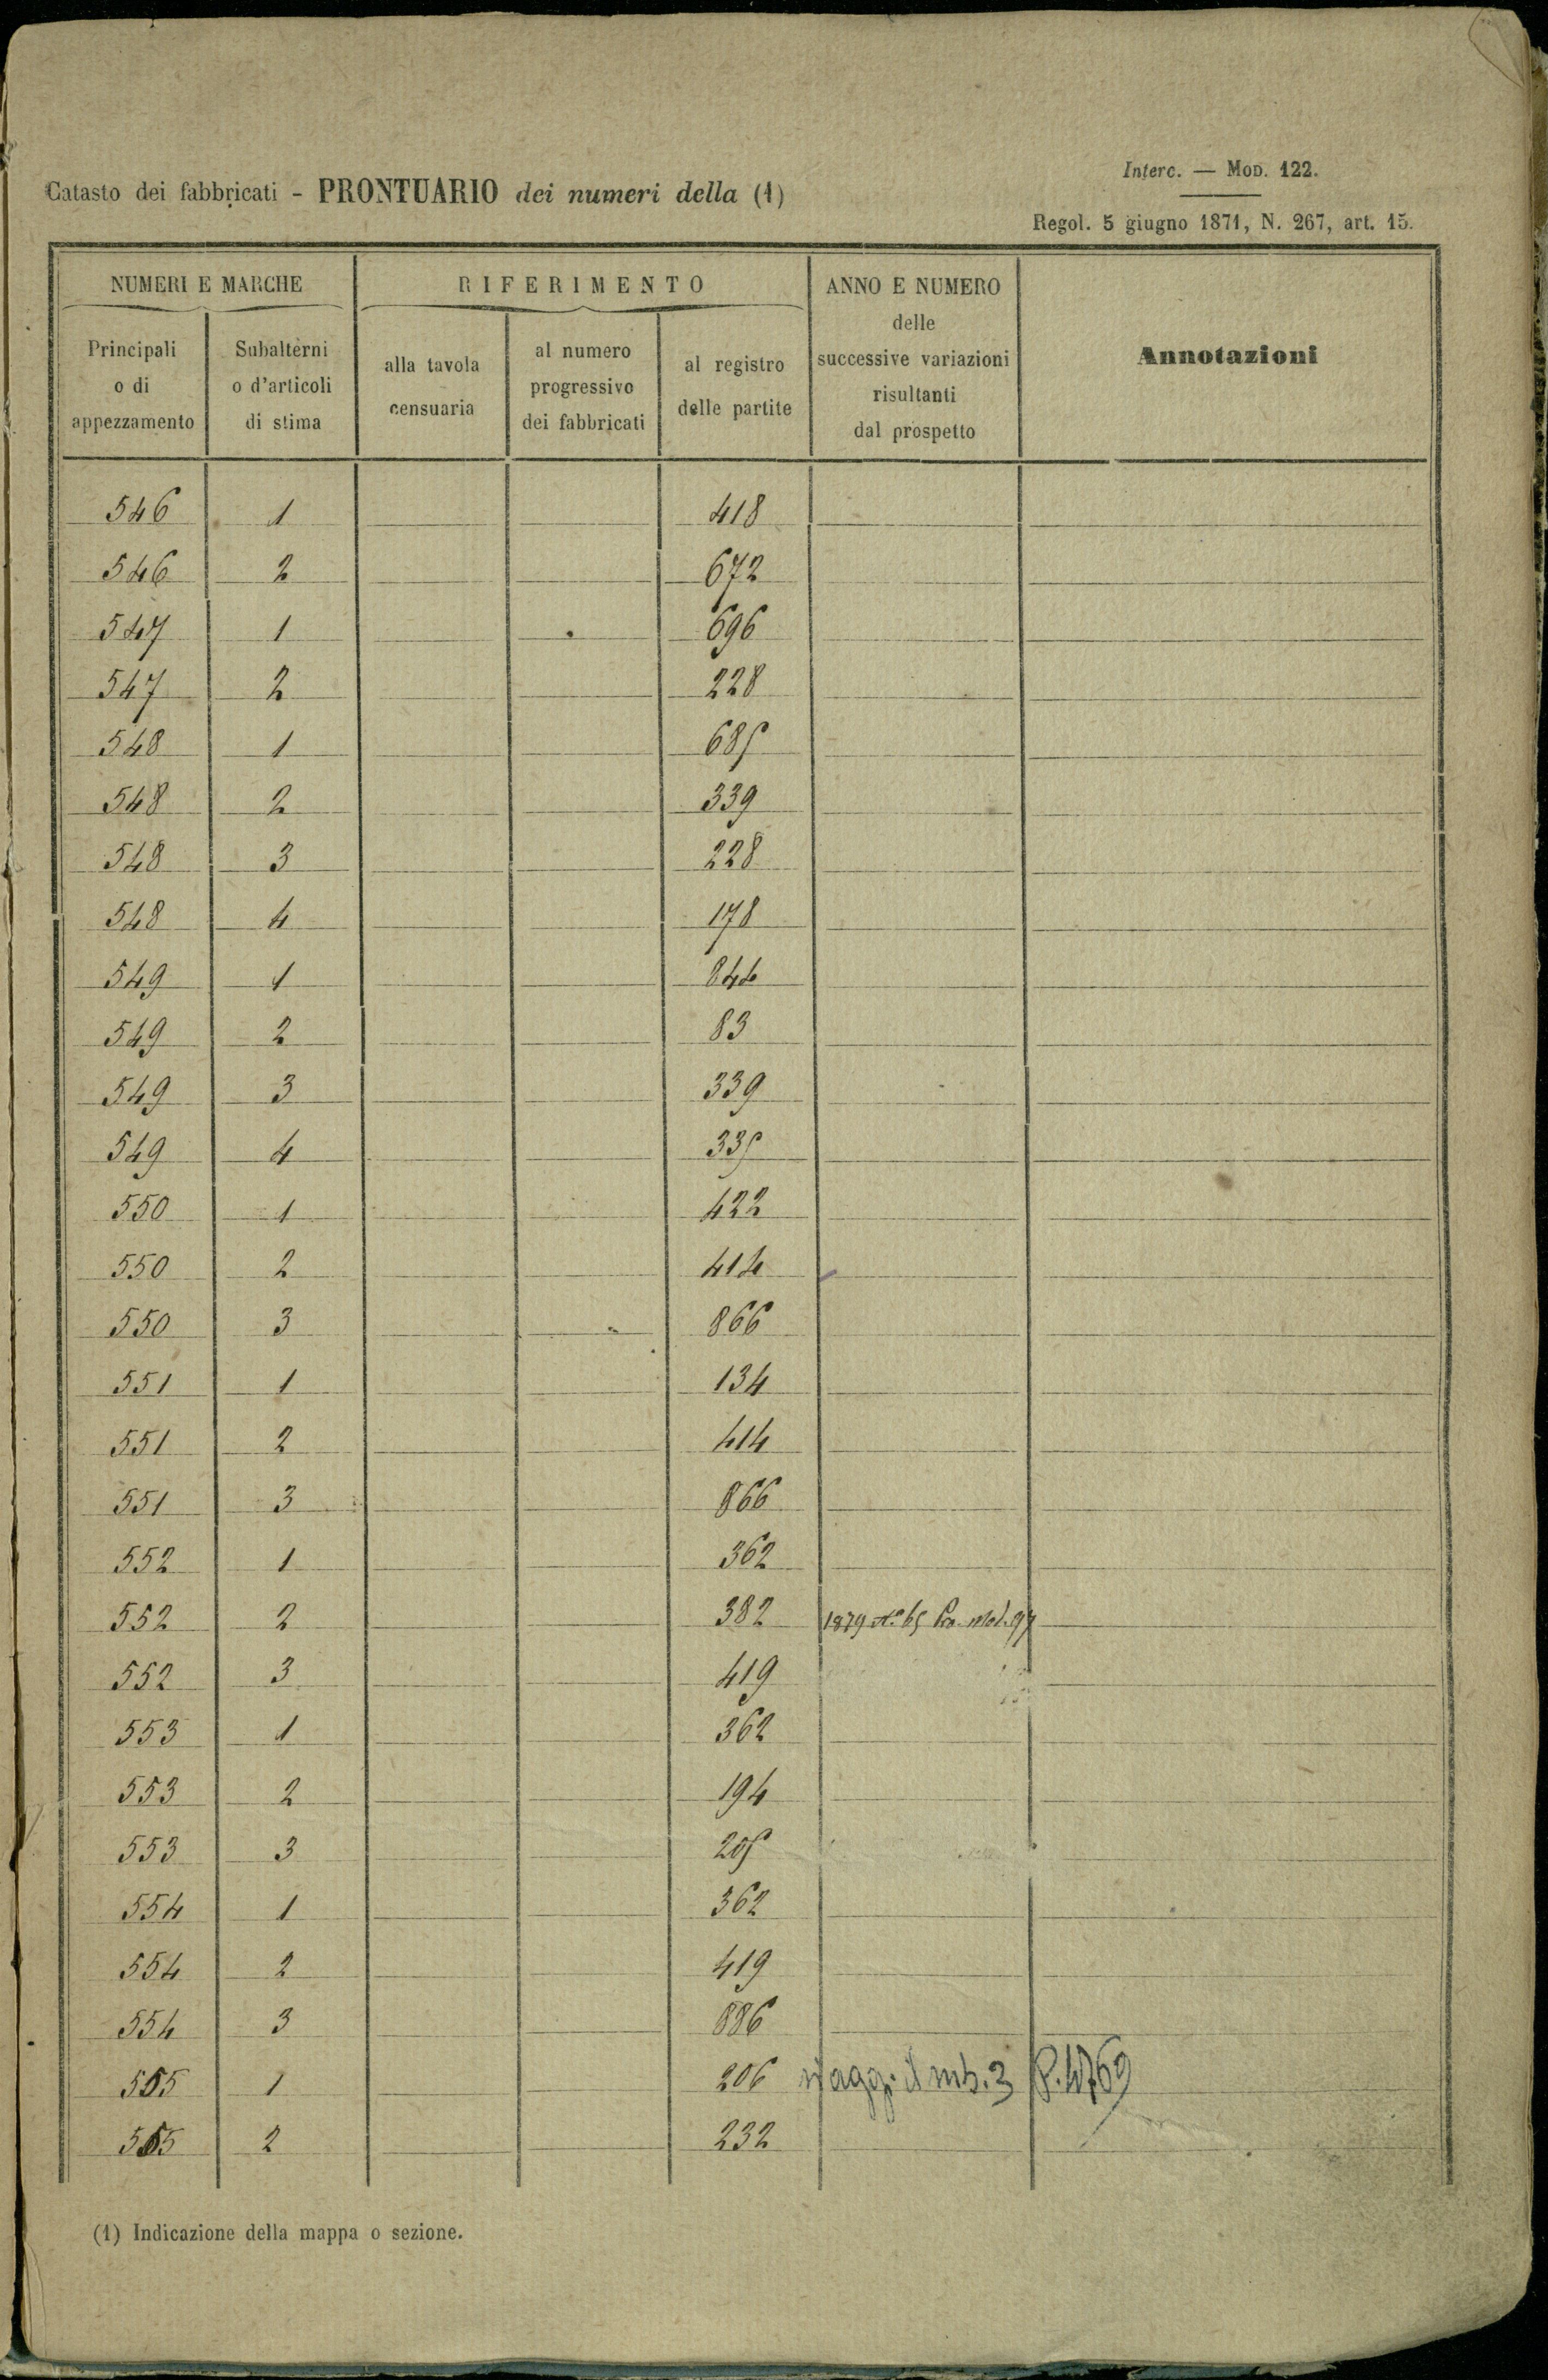 Catasto dei fabbricati - PRONTUARIO dei numeri della (1)
Interc. — Mod. 122.
Regol. 5 giugno 1871, N. 267, art. 15.
NUMERI E MARCHE RIFERIMENTO ANNO E NUMERO delle successive variazioni risultanti dal prospetto Annotazioni
Principali o di appezzamento Subalterni o d'articoli di stima alla tavola censuaria al numero progressivo dei fabbricati al registro delle partite
546 1 418
546 2 672
547 1 696
547 2 228
548 1 685
548 2 339
548 3 228
548 4 178
549 1 844
549 2 83
549 3 339
549 4 335
550 1 422
550 2 414
550 3 866
551 1 134
551 2 414
551 3 866
552 1 362
552 2 382 1879 N° 65 Mod. 97
552 3 419
553 1 362
553 2 194
553 3 205
554 1 362
554 2 419
554 3 886
555 1 206 agg. 3
555 2 232
(1) Indicazione della mappa o sezione.